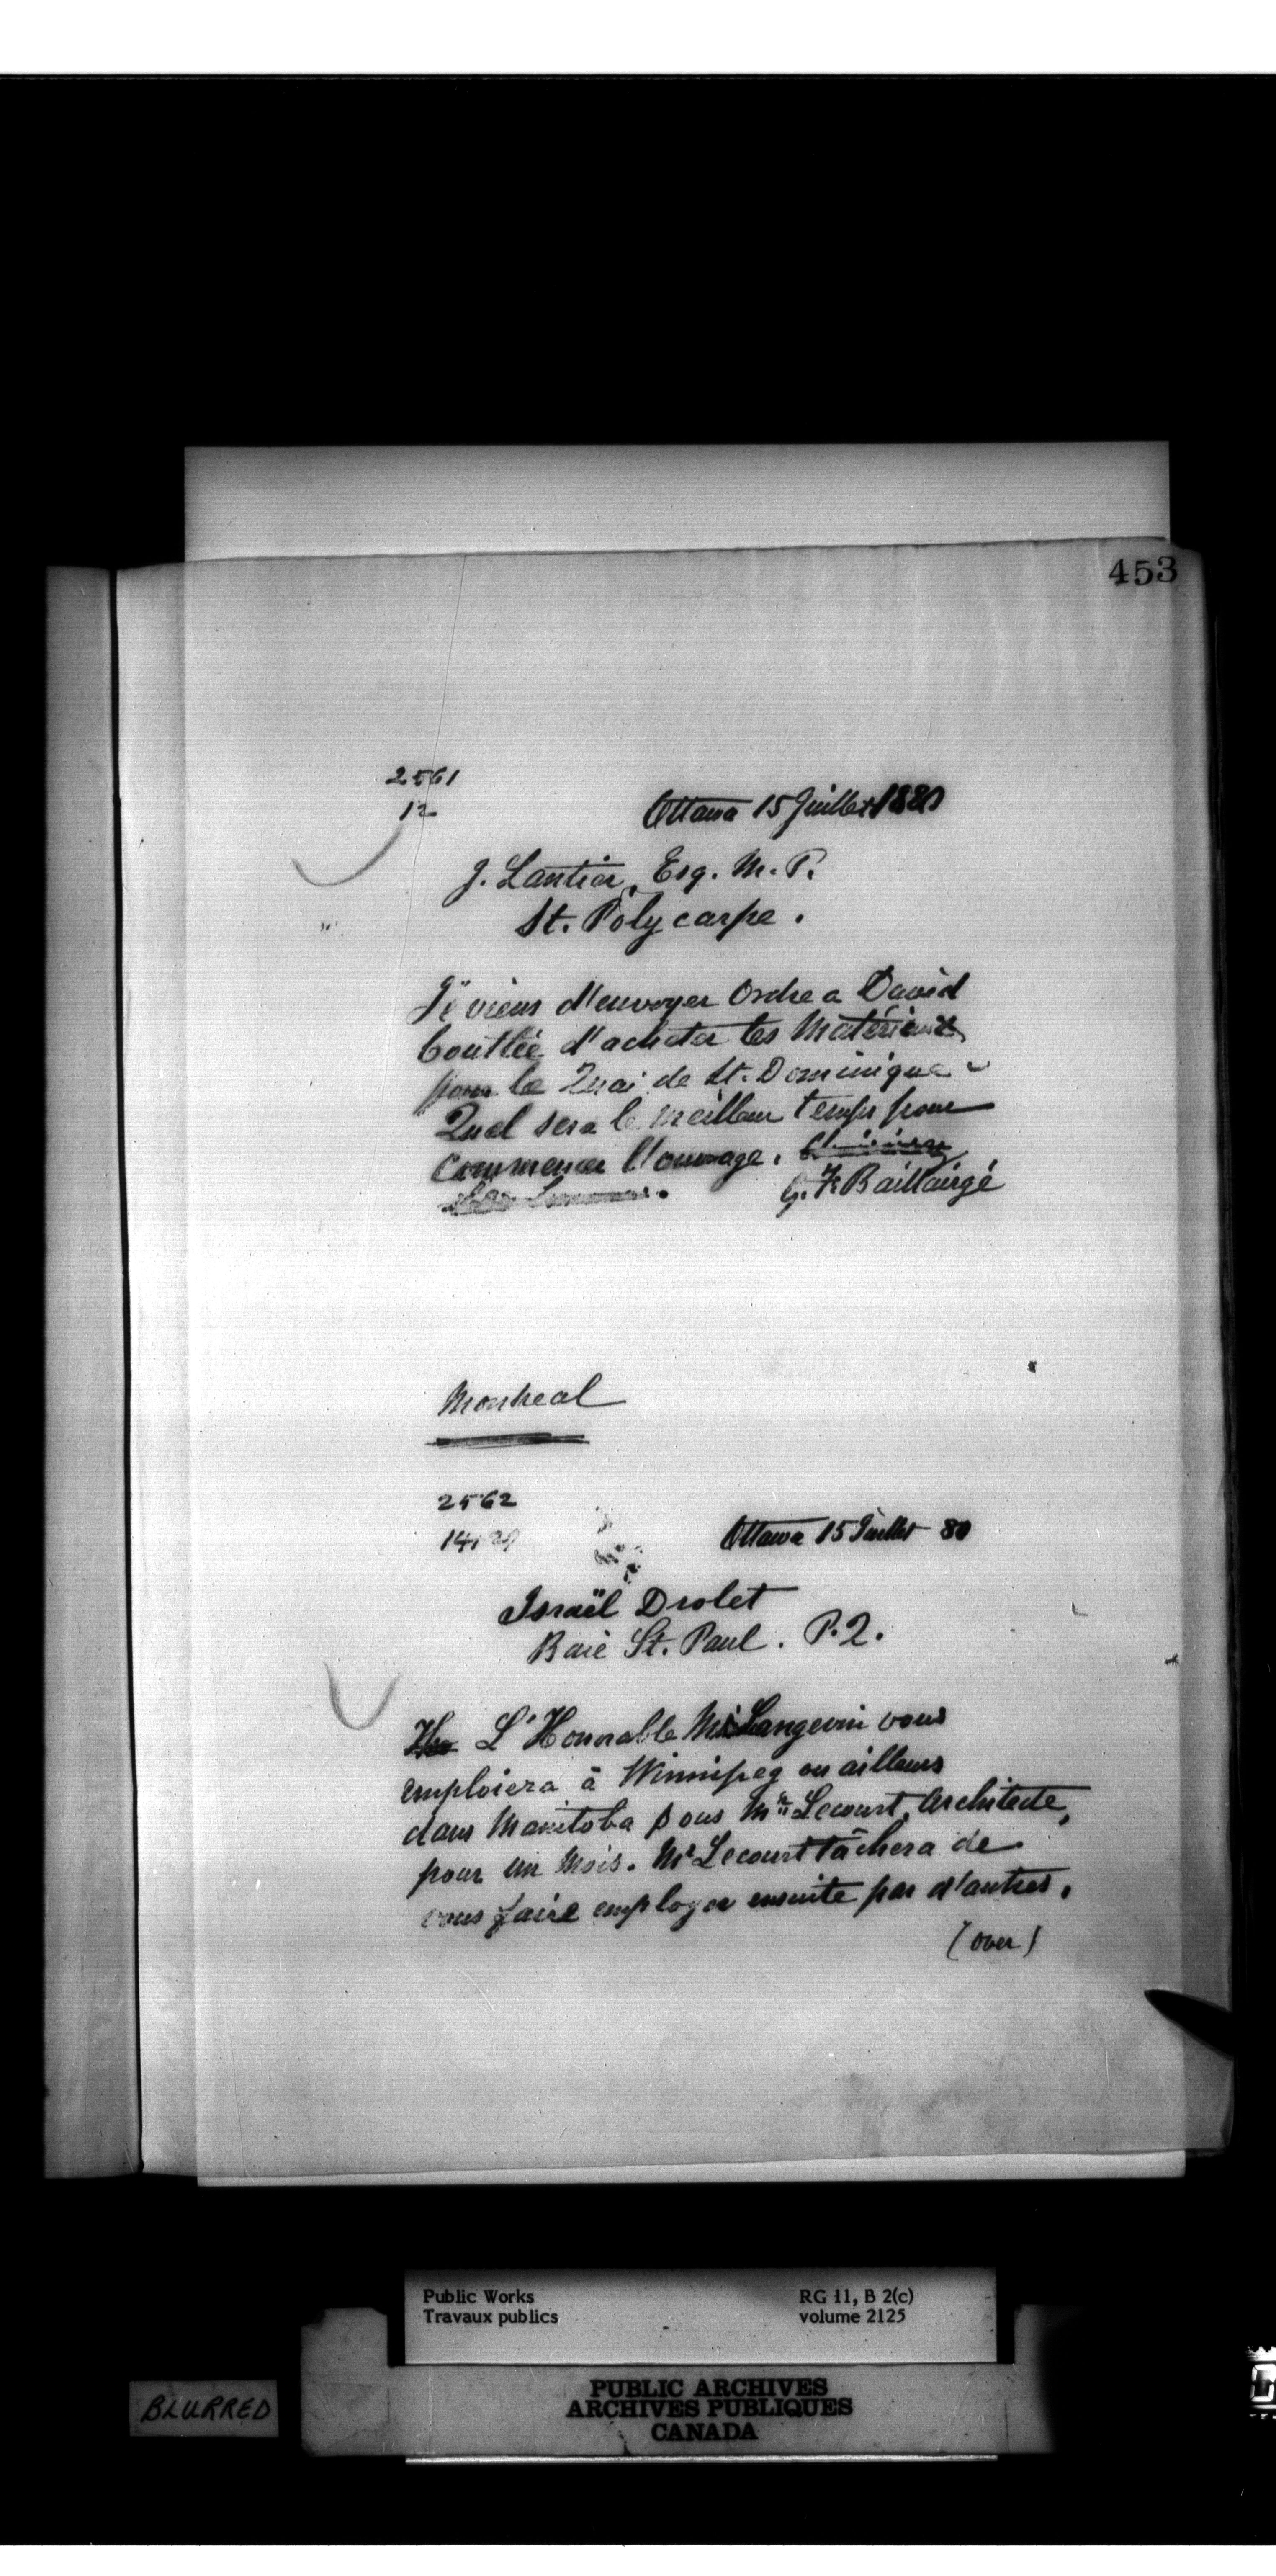 453
2561
12
Ottawa 15 Juillet 1880
J. Lantier, Esq. M. P.
St. Polycarpe.
Je viens d'envoyer Ordre a David
d'acheter les Matériaux
pour le Quai de St. Dominique -
Quel sera le meilleur temps pour
commencer l'ouvrage.
G. F. Baillairgé
Montreal
2562
Ottawa 15 Juillet 80
Israël Drolet
Baie St. Paul. P. Q.
The L'Honorable Mr Langevin vous
emploiera à Winnipeg ou ailleurs
dans Manitoba sous Mr Lecourt, Architecte,
pour un Mois. Mr Lecourt tâchera de
vous faire employer ensuite par d'autres.
(over)
Public Works
Travaux publics
RG 11, B 2(c)
volume 2125
BLURRED
PUBLIC ARCHIVES
ARCHIVES PUBLIQUES
CANADA